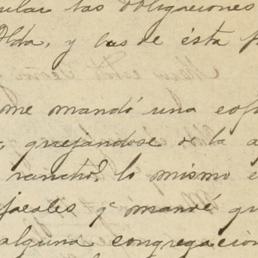 cular las obligaciones
Olda, y las de ésta p
me mandó una cop
quejándose de la a
rancho, lo mismo e
jacales q.e mandé qu
alguna congregación